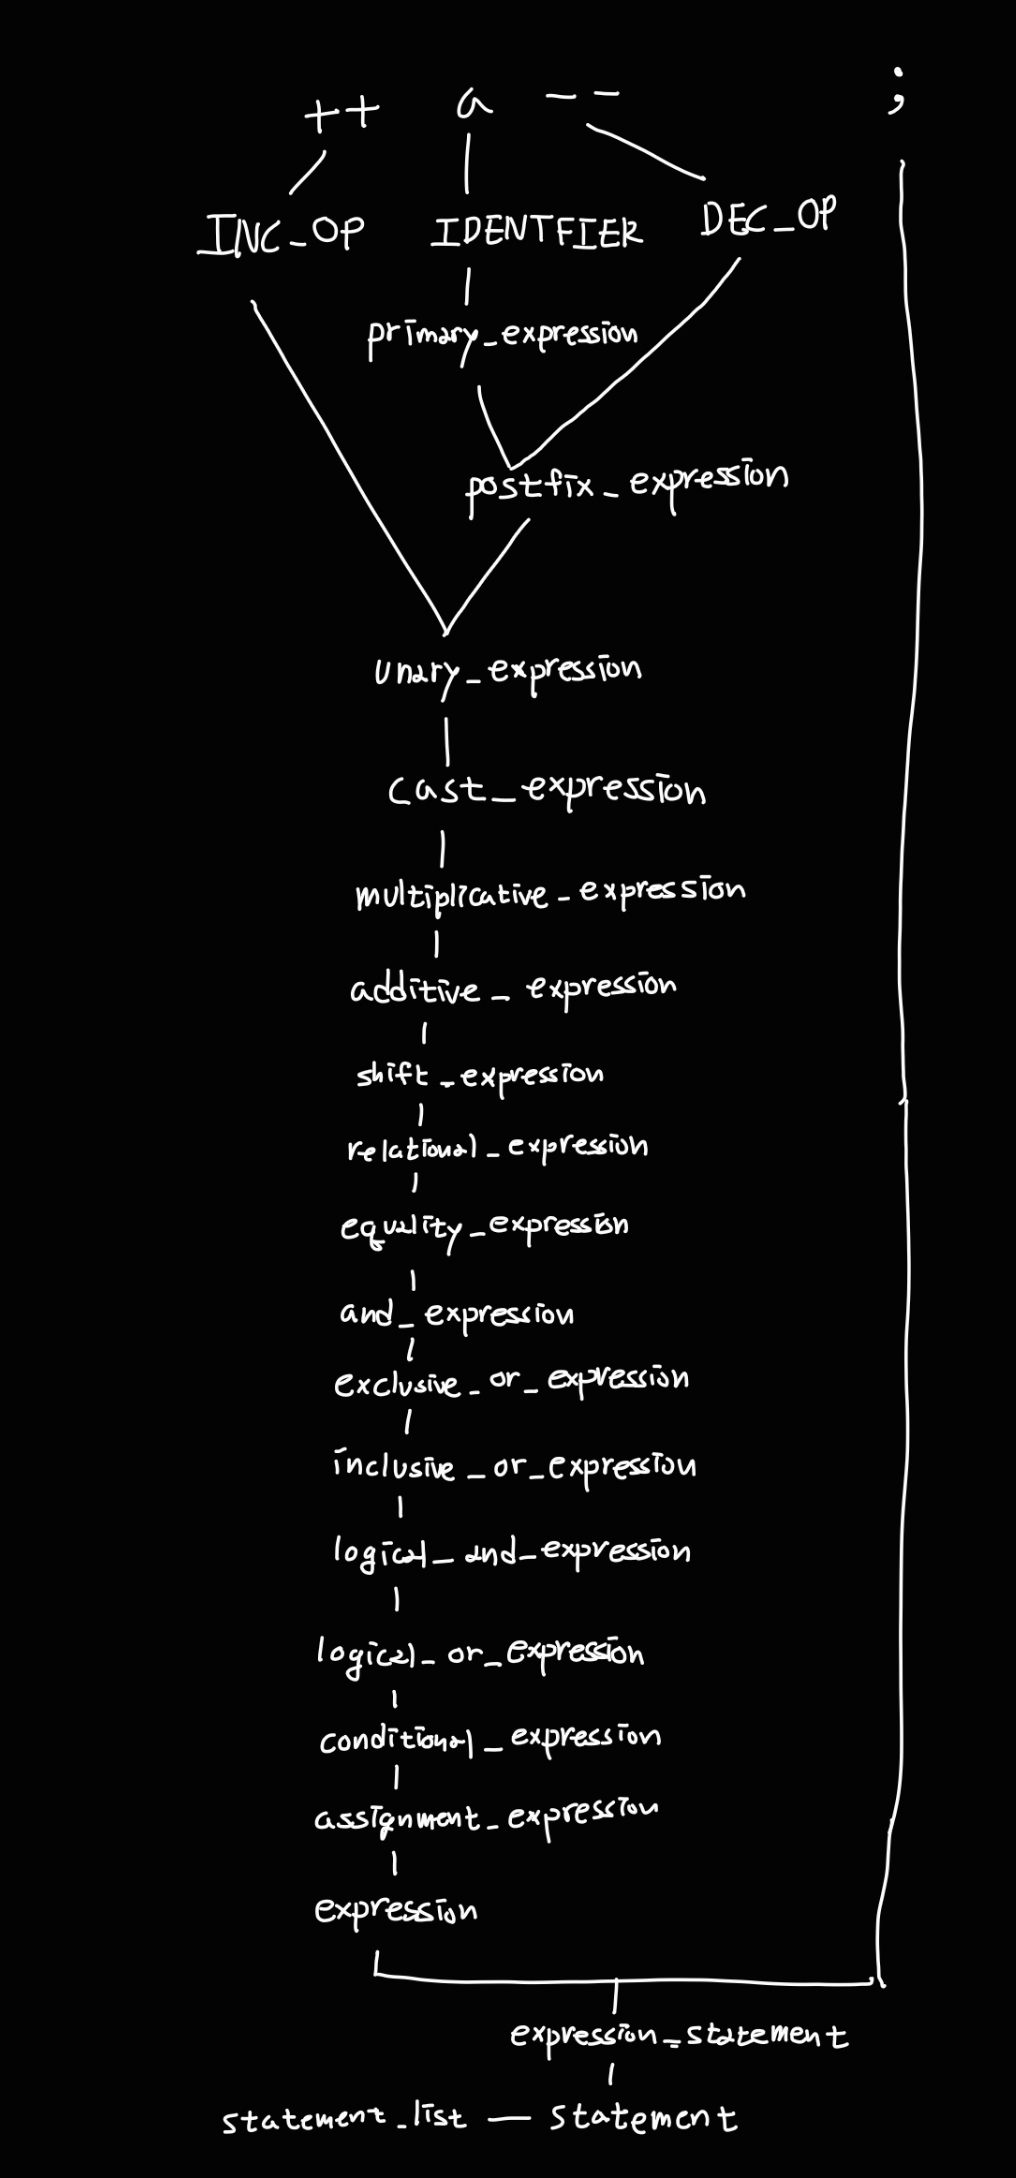 ++ a -- ;
INC_OP IDENTFIER DEC_OP
primary_expression
postfix_expression
unary_expression
cast_expression
multiplicative_expression
additive_expression
shift_expression
relational_expression
equality_expression
and_expression
exclusive_or_expression
inclusive_or_expression
logical_and_expression
logical_or_expression
conditional_expression
assignment_expression
expression
expression_statement
statement_list — statement